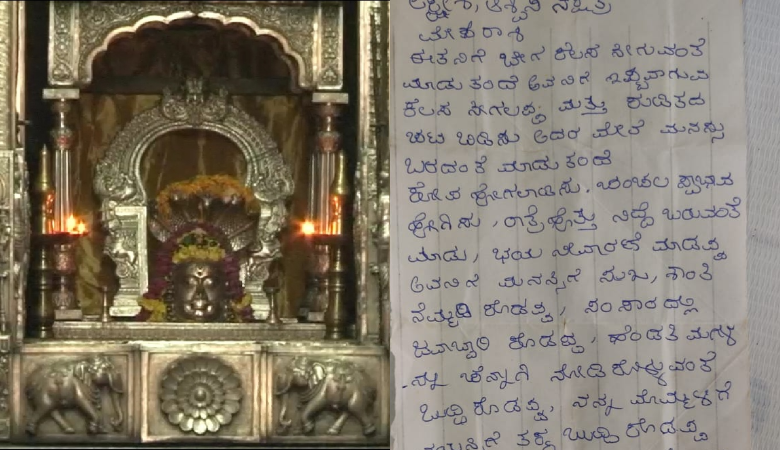 ಲಕ್ಷ್ಮೀಶ, ಅಶ್ವಿನಿ ನಕ್ಷತ್ರ
ಮೇಶ ರಾಶಿ
ಈತನಿಗೆ ಬೇಗ ಕೆಲಸ ಸೀಗುವಂತೆ
ಮಾಡು ತಂದೆ ಅವನಿಗೆ ಇಷ್ಟವಾಗುವ
ಕೆಲಸ ಸೀಗಲಪ್ಪ ಮತ್ತು ಕುಡಿತದ
ಚಟ ಬಿಡಿಸು ಅದರ ಮೇಲೆ ಮನಸ್ಸು
ಬರದಂತೆ ಮಾಡು ತಂದೆ
ಕೋಪ ಹೋಗಲಾಡಿಸು. ಚಂಚಲ ಸ್ವಾಭಾವ
ಹೋಗಿಸು, ರಾತ್ರೆಹೊತ್ತು ನಿದ್ದೆ ಬರುವಂತೆ
ಮಾಡು, ಭಯ ನೀವಾರಣೆ ಮಾಡಪ್ಪ
ಅವನಿಗೆ ಮನಸ್ಸಿಗೆ ಸುಖ, ಶಾಂತಿ
ನೆಮ್ಮದಿ ಕೊಡಪ್ಪ, ಸಂಸಾರದಲ್ಲಿ
ಜವಾಬ್ದಾರಿ ಕೊಡಪ್ಪ, ಹೆಂಡತಿ ಮಗಳ
ನ್ನು ಚೆನ್ನಾಗಿ ನೋಡಿಕೊಳ್ಳುವಂತೆ
ಬುದ್ದಿ ಕೊಡಪ್ಪ, ನನ್ನ ಮೊಮ್ಮಗಳಿಗೆ
ತಕ್ಕ ಬುದ್ಧಿ ಕೊಡಪ್ಪ